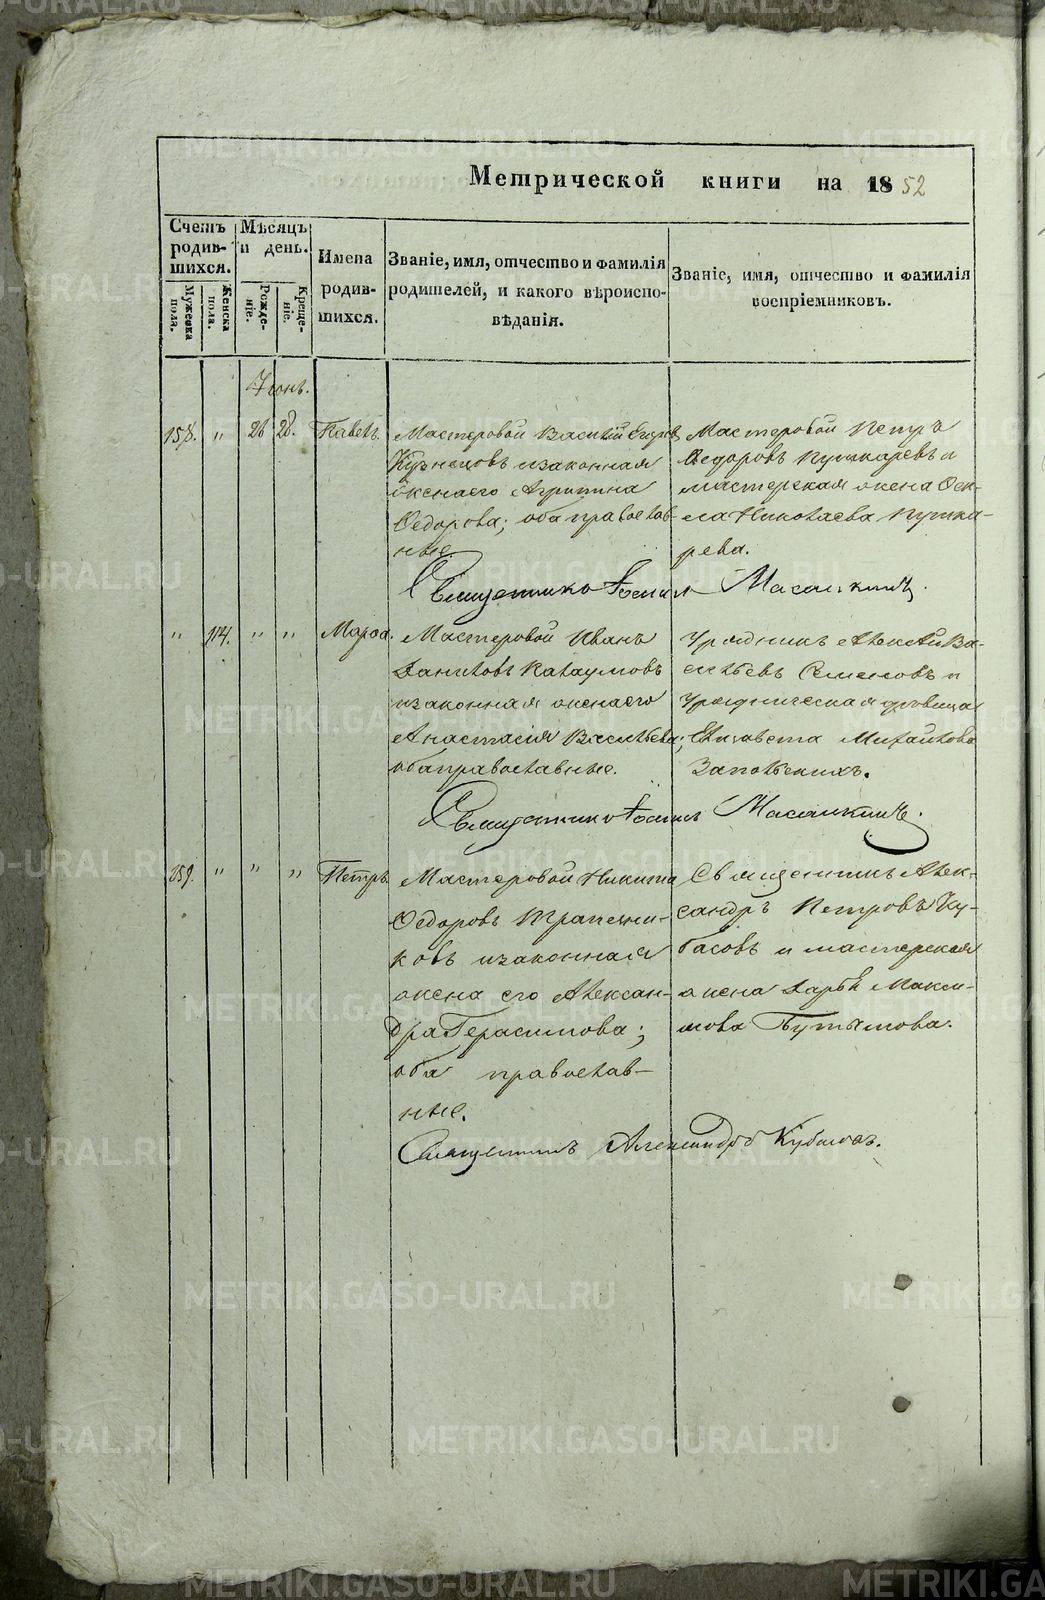 Метрической книги на 1852
Счетъ родившихся.
Мужеска пола.
Женска пола.
Мѣсяцъ и день.
Рожденіе.
Крещеніе.
Имена родившихся.
Званіе, имя, отчество и фамилія
родителей, и какого вѣроиспо-
вѣданія.
Званіе, имя, отчество и фамилія
воспріемниковъ.
Іюнь.
158. " 26 28. Павелъ.
Мастеровой Василій Егоровъ
Кузнецовъ изаконная
жена его Агрипина
Ѳедорова; оба православ-
ные.
Мастеровой Петръ
Ѳедоровъ Пушкаревъ и
мастерская жена Ѳек-
ла Николаева Пушка-
рева.
Священникъ Іоаннъ
" 114. " " Марѳа.
Мастеровой Иванъ
Даниловъ Калаумовъ
изаконная жена его
Анастасія Васильева;
оба православные.
Урядникъ Алексѣй Ва-
сильевъ Семеновъ и
Урядническая дѣвица
Елизавета Михайлова
Запольскихъ.
Священникъ Іоаннъ
159. " " " Петръ.
Мастеровой Никита
Ѳедоровъ Трапезни-
ковъ изаконная
жена его Алексан-
дра Герасимова;
оба православ-
ные.
Священникъ Алек-
сандръ Петровъ Ку-
басовъ и мастерская
жена Дарья Макси-
мова
Священникъ Александръ Кубасовъ.
METRIKI.GASO-URAL.RU